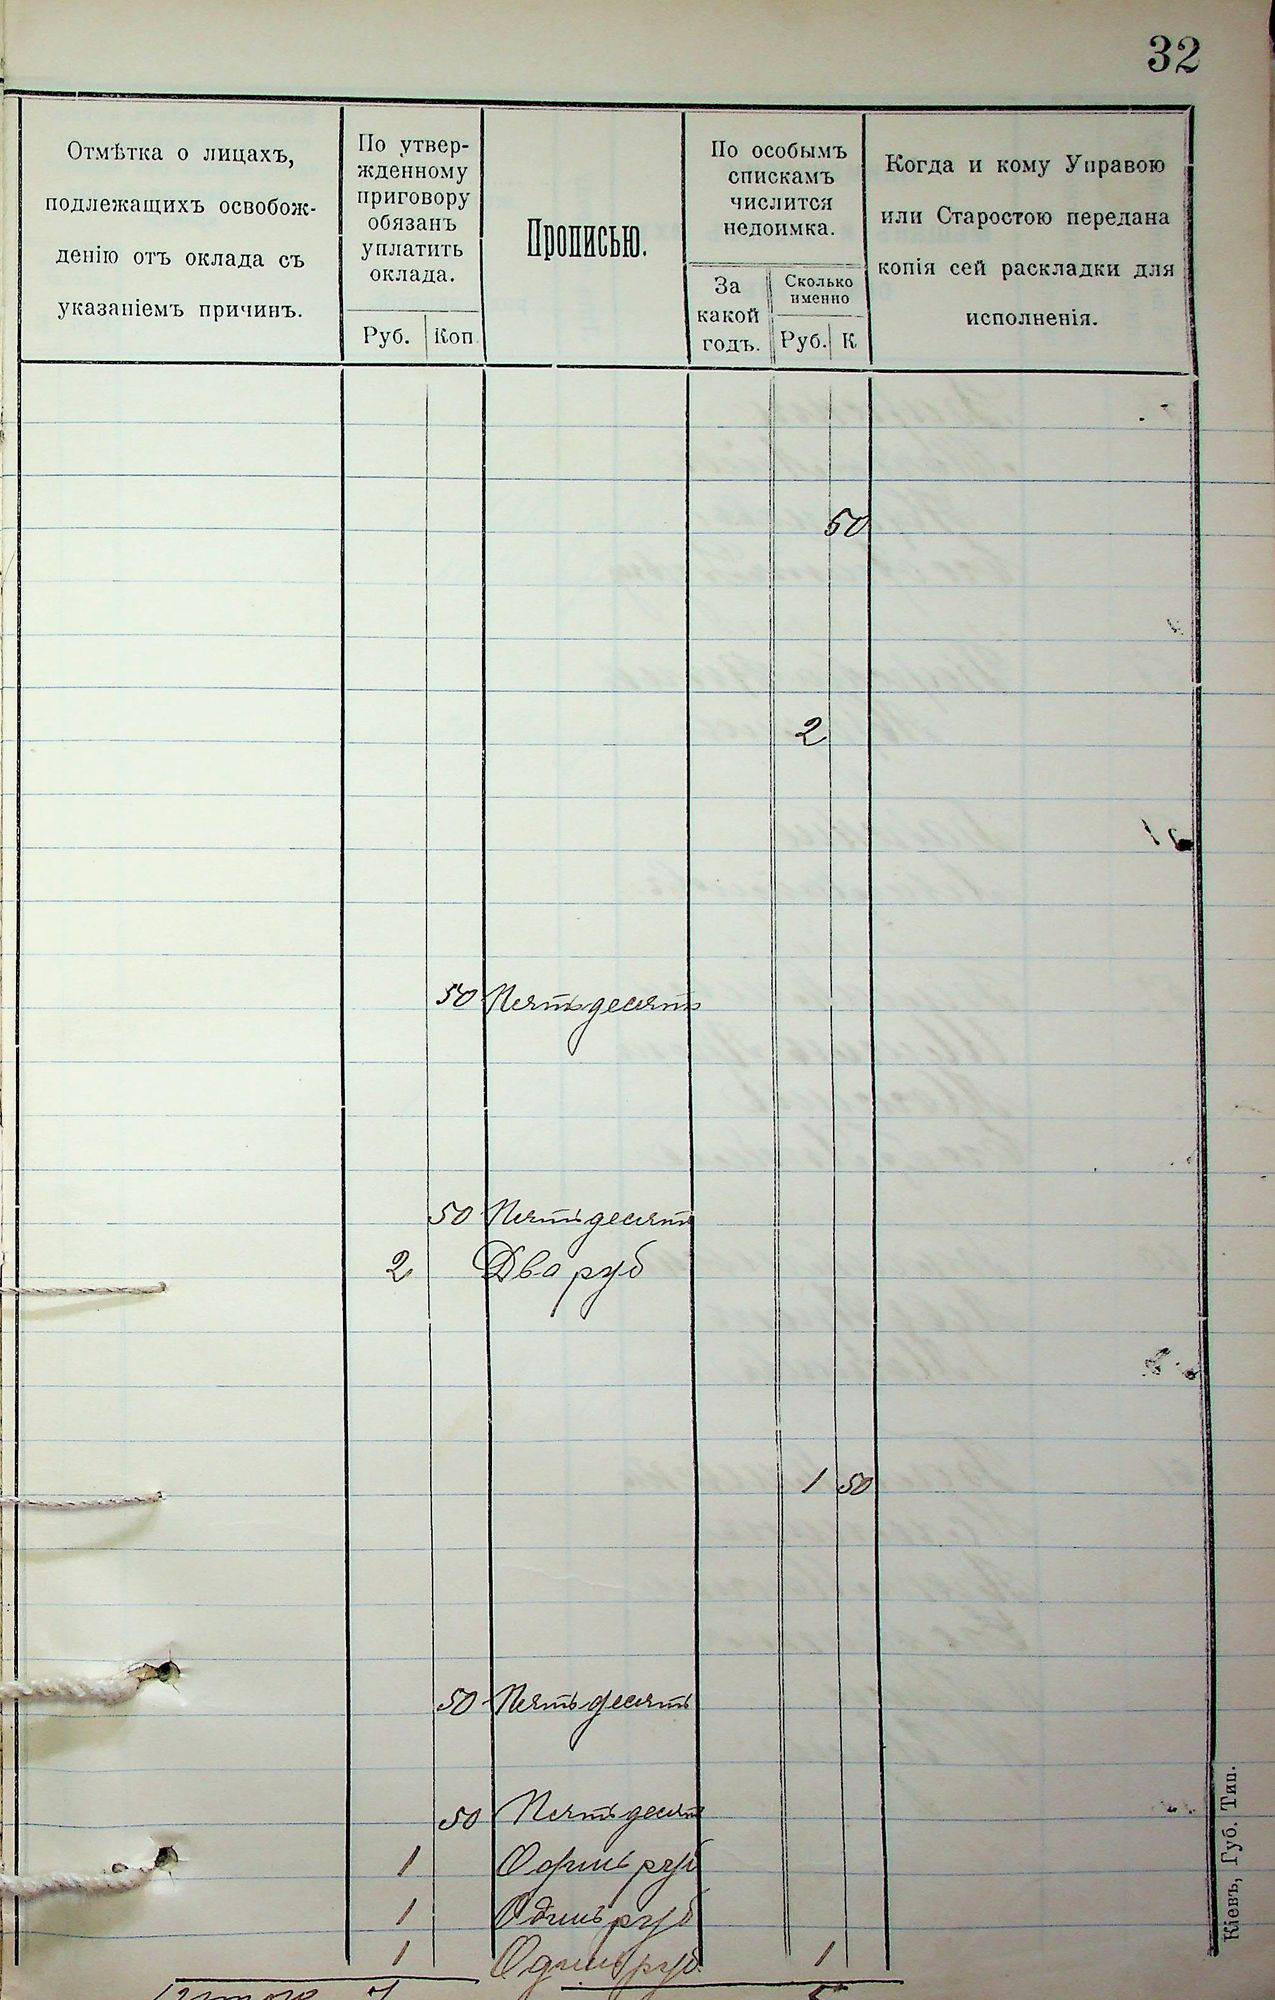 32
Отмѣтка о лицахъ,
подлежащихъ освобож-
денію отъ оклада съ
указаніемъ причинъ.
По утвер-
жденному
приговору
обязанъ
уплатить
оклада.
Руб.
Коп.
Прописью.
По особымъ
спискамъ
числится
недоимка.
За
какой
годъ.
Сколько
именно
Руб.
К
Когда и кому Управою
или Старостою передана
копія сей раскладки для
исполненія.
50
2
50 Пятьдесятъ
50 Пятьдесятъ
2 Два руб
1 50
50 Пятьдесятъ
50 Пятьдесят
1 Одинъ руб
1 Одинъ руб
1 Одинъ руб. 1
Кіевъ, Губ. Тип.